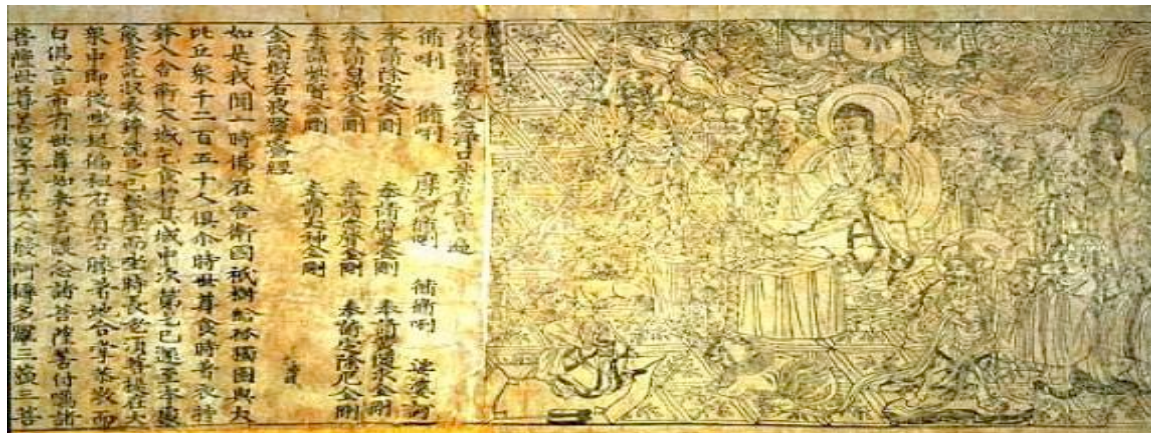 凡欲讀經先念淨口業真言一遍
脩唎 脩唎 摩訶脩唎 脩脩唎 娑婆訶
奉請除災金剛 奉請金剛 奉請金剛
奉請金剛 奉請赤聲金剛 奉請定除厄金剛
奉請紫賢金剛 奉請大神金剛
金剛般若波羅蜜經
如是我聞一時佛在舍衛國祇樹給孤獨園與大
比丘眾千二百五十人俱尒時世尊食時著衣持
鉢入舍衛大城乞食於其城中次第乞已還至本處
飯食訖收衣鉢洗足已敷座而坐時長老須菩提在大
眾中即從座起偏袒右肩右膝著地合掌恭敬而
白佛言希有世尊如來善護念諸菩薩善付囑諸
菩薩世尊善男子善女人發阿耨多羅三藐三菩